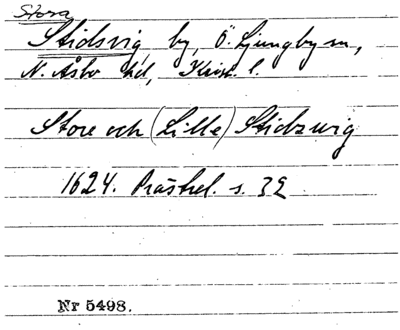 Stora
Stidsvig, by, Ö. Ljungby sn,
N. Åsbo hd, Krist. l.
Store och (Lille) Stidzwig
1624. Prästrel. s. 32
Nr 5498.